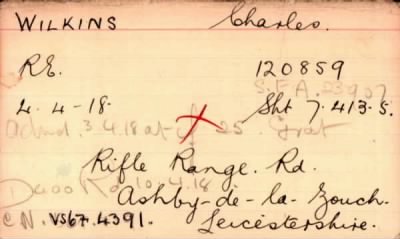 WILKINS Charles.
R.E. 120859
S.F.A. 23907
4.4-18. Sht 7.413.5.
Admd. 3.4.18 at 25
Rifle Range. Rd.
10.4.18
Ashby-de-la-Zouch.
C N. VS67.4391. Leicestershire.